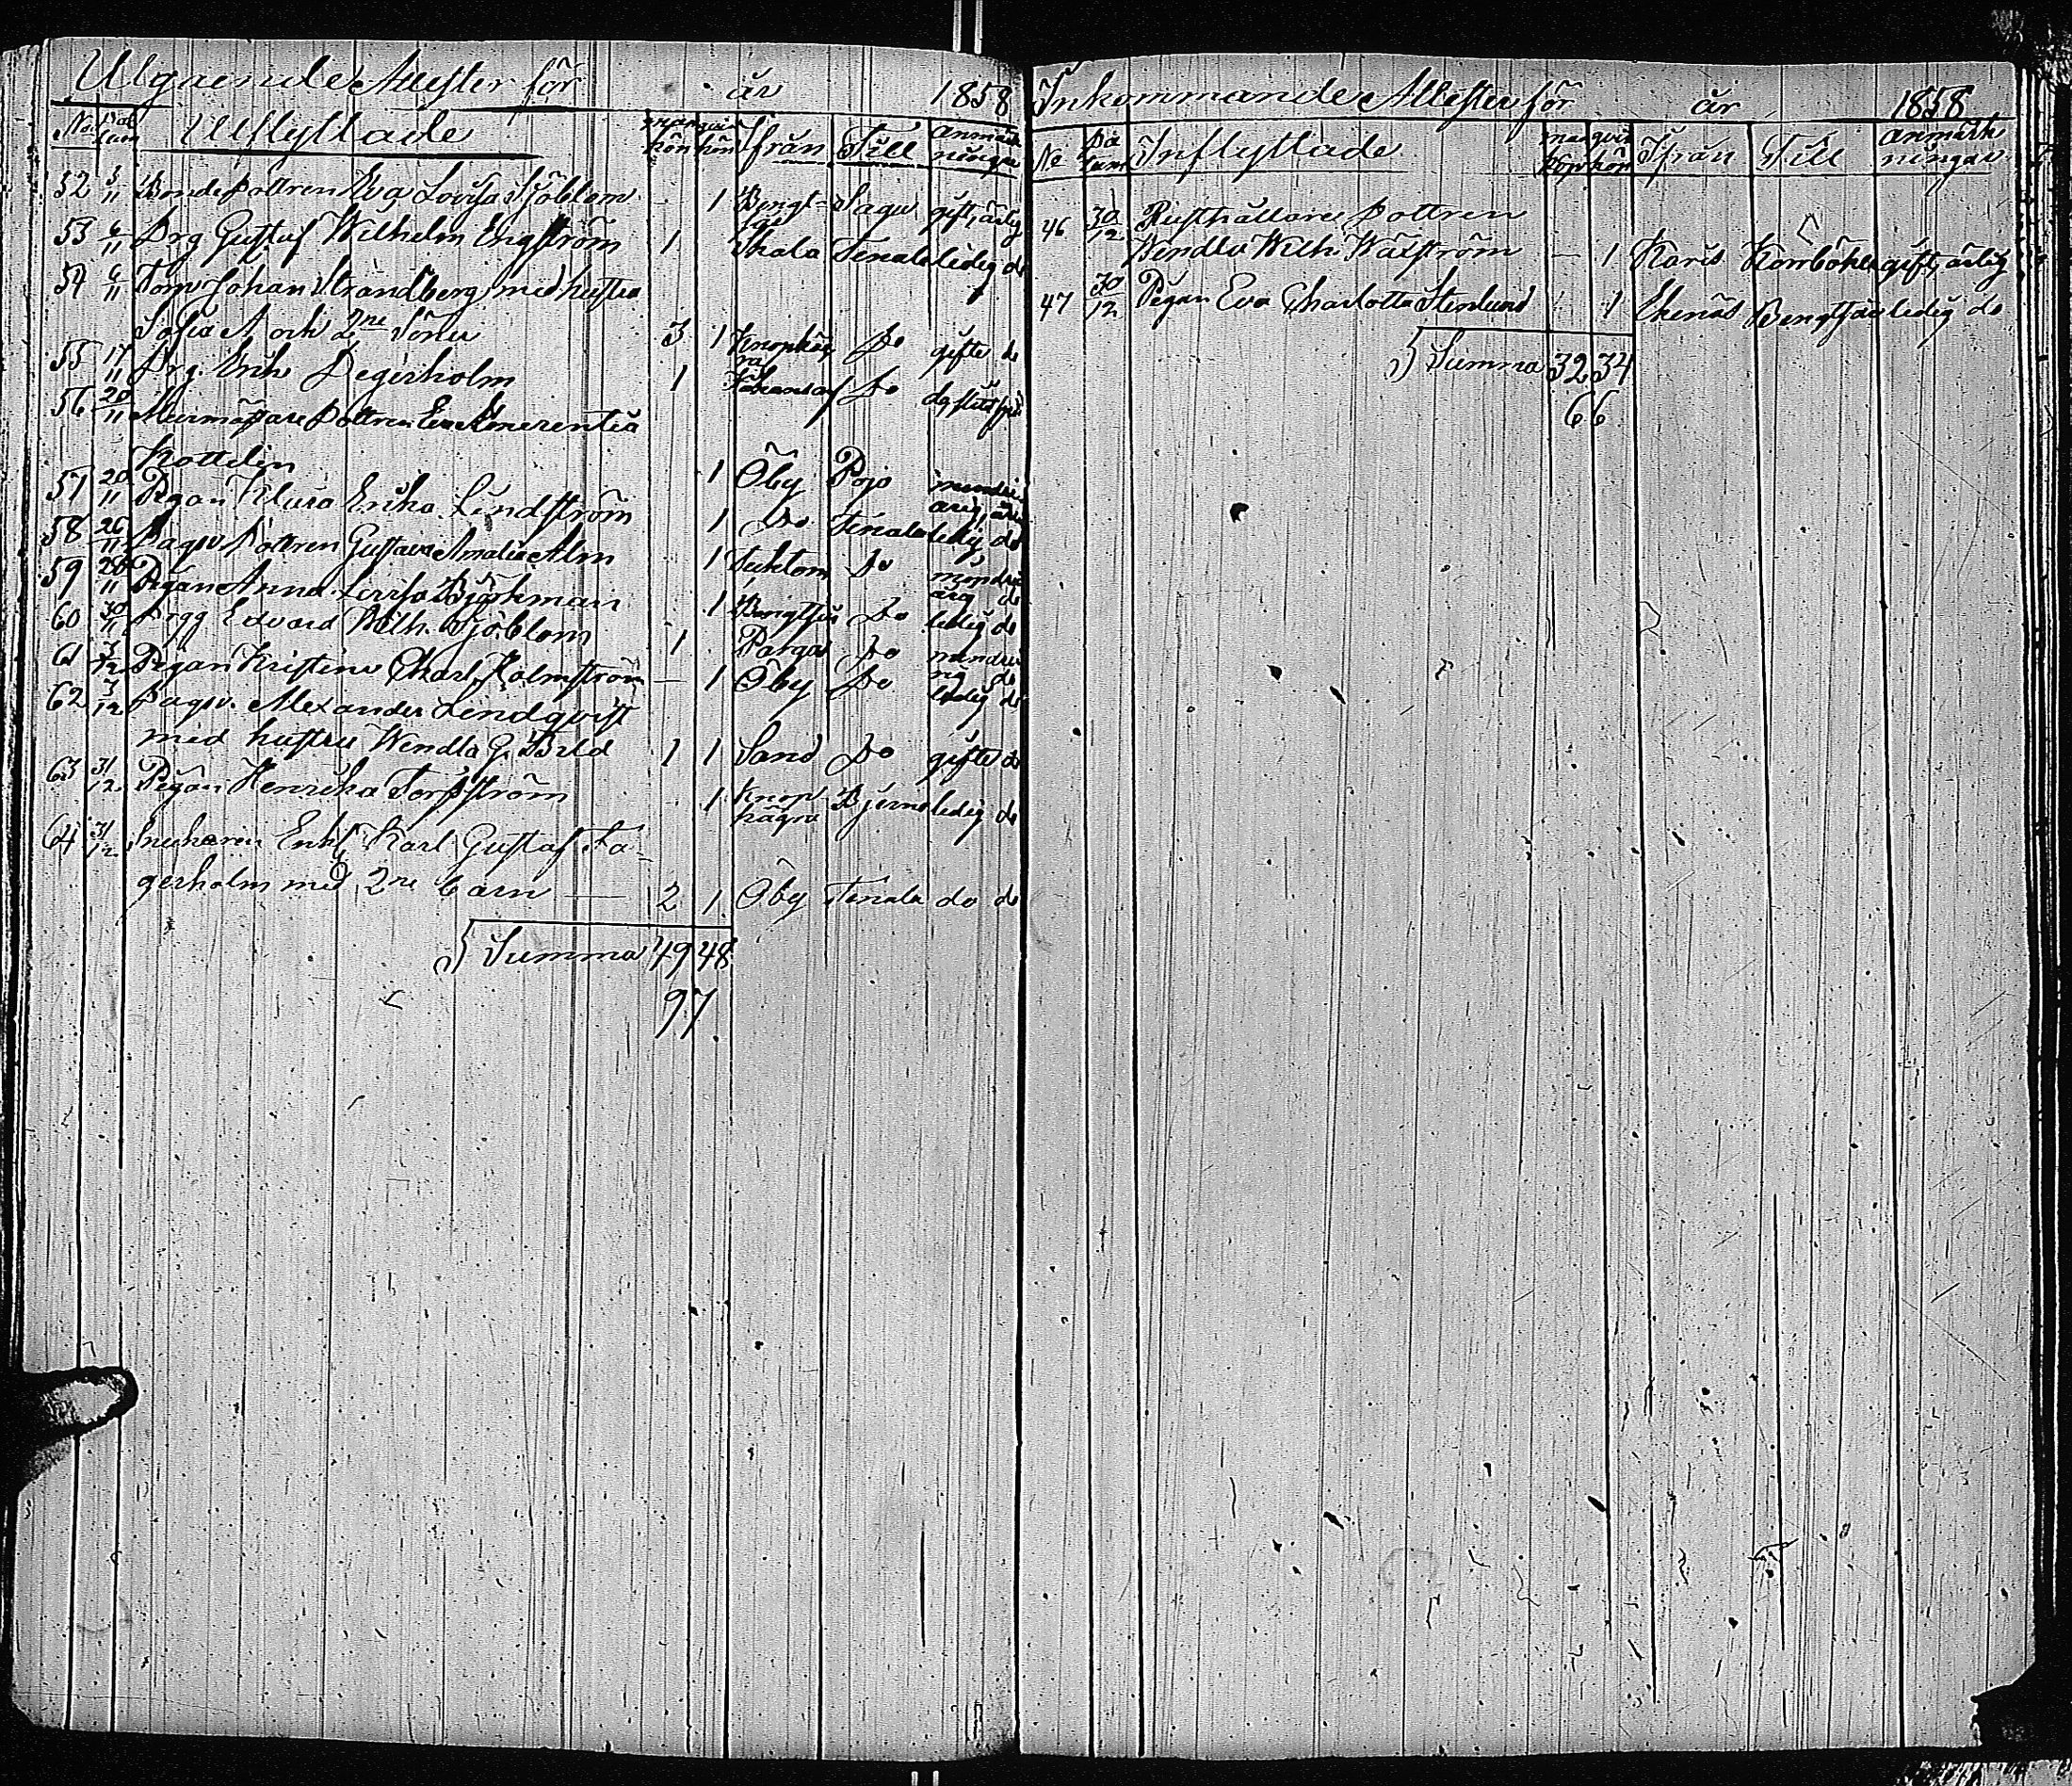 Utgående Attester för år 1858
No Datum Utflyttade mankön qvinkön Ifrån Till anmärkningar
52 3/11 Bonde Dottren Eva Lovisa Sjöblom 1 Bengtsår Sagu gift, ärlig
53 6/11 Drg Gustaf Wilhelm Engström 1 Skala Tenala ledig do
54 6/11 Torp. Johan Strandberg med hustru
Sofia A och 2ne Söner 3 1 Knophägra Do gifte do
55 17/11 Drg. Erik Degerholm 1 Do
56 20/11 Dottren Eva Emerentia
Kottelin 1 Öby Pojo
57 20/11 Pigan Klara Erika Lindström 1 Do Tenala ledig do
58 26/11 Dagsv. Dottren Gustava Amalia Alm 1 Do mindreårig do
59 28/11 Pigan Anna Lovisa Björkman 1 Bengtsår Do ledig do
60 30/11 Drgg Edvard Wilh. Sjöblom 1 Do
61 3/12 Pigan Kristina Charl. Holmström — 1 Öby Do ledig do
62 3/12 Dagsv. Alexander Lindqvist
med hustru Wendla G. Bild 1 1 Sand Do gifte do
63 31/12 Pigan Henrika Torsström 1 Knophägra Bjerno ledig do
64 31/12 Enkl. Karl Gustaf Fa-
gerholm med 2ne barn — 2 1 Öby Tenala do do
Summa 49 48
97.
Inkommande Attester för år 1858
No Datum Inflyttade mankön qvinkön Ifrån Till anmärkningar
46 30/12 Rusthållare Dottren
Wendla Wilh. Wälström — 1 Karis Horrböhle gift, ärlig
47 30/12 Pigan Eva Charlotta Stenlund 1 Ekenäs Bengtsår ledig do
Summa 32 34
66